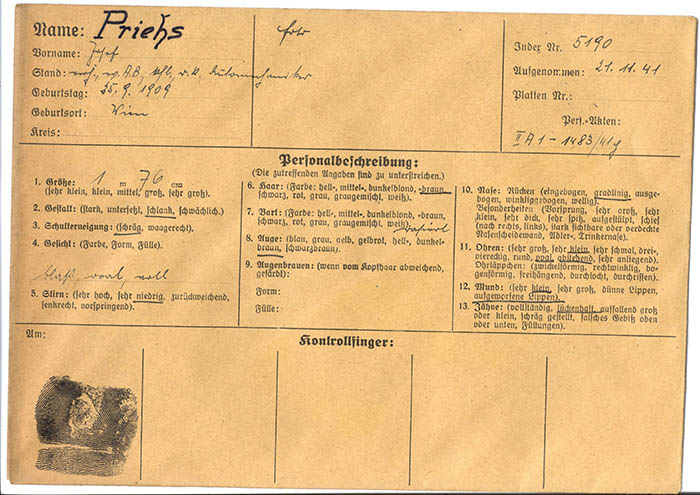 Name: Priehs
Vorname: Josef
Stand: Automechaniker
Geburtstag: 25. 9. 1909
Geburtsort: Wien
Kreis:
foto
Index Nr. 5190
Aufgenommen: 21. 11. 41
Platten Nr.:
Pers.-Akten:
II A 1 - 1483/41g
Personalbeschreibung:
(Die zutreffenden Angaben sind zu unterstreichen.)
1. Größe: 1 m 76 cm
(sehr klein, klein, mittel, groß, sehr groß).
2. Gestalt: (stark, untersetzt, schlank, schwächlich).
3. Schulterneigung: (schräg, waagerecht).
4. Gesicht: (Farbe, Form, Fülle).
blaß, oval, voll
5. Stirn: (sehr hoch, sehr niedrig, zurückweichend,
senkrecht, vorspringend).
6. Haar: (Farbe: hell-, mittel-, dunkelblond, -braun,
schwarz, rot, grau, graugemischt, weiß).
7. Bart: (Farbe: hell-, mittel-, dunkelblond, -braun,
schwarz, rot, grau, graugemischt, weiß). rasiert
8. Auge: (blau, grau, gelb, gelbrot, hell-, dunkel-
braun, schwarzbraun).
9. Augenbrauen: (wenn vom Kopfhaar abweichend,
gefärbt):
Form:
Fülle:
10. Nase: Rücken (eingebogen, gradlinig, ausge-
bogen, winkliggebogen, wellig).
Besonderheiten (Vorsprung, sehr groß, sehr
klein, sehr dick, sehr spitz, aufgestülpt, schief
(nach rechts, links), stark sichtbare oder verdeckte
Nasenscheidewand, Adler-, Trinkernase).
11. Ohren: (sehr groß, sehr klein, sehr schmal, drei-
viereckig, rund, oval, abstehend, sehr anliegend).
Ohrläppchen: (zwickelförmig, rechtwinklig, bo-
genförmig, freihängend, durchlocht, durchrissen).
12. Mund: (sehr klein, sehr groß, dünne Lippen,
aufgeworfene Lippen).
13. Zähne: (vollständig, lückenhaft, auffallend groß
oder klein, schräg gestellt, falsches Gebiß oben
oder unten, Füllungen).
Am:
Kontrollfinger: